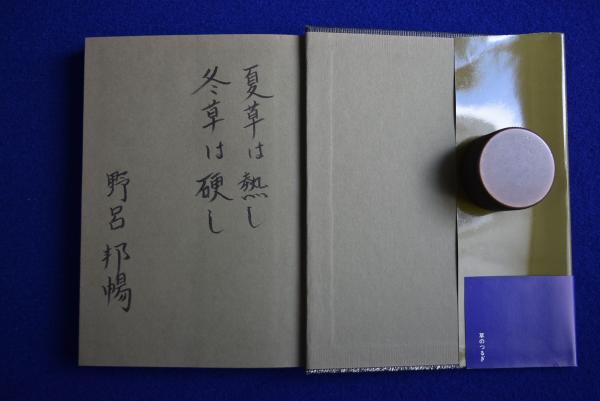 夏草は熱し
冬草は硬し
野呂邦暢
草のつるぎ